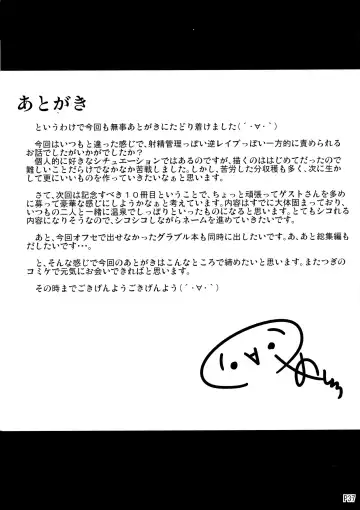 あとがき
というわけで今回も無事あとがきにたどり着けました(´・∀・｀)
今回はいつもと違った感じで、射精管理っぽい逆レイプっぽい一方的に責められる
お話でしたがいかがでしたか？
個人的に好きなシチュエーションではあるのですが、描くのははじめてだったので
難しいことだらけでなかなか苦戦しました。しかし、苦労した分収穫も多く、次に生か
して更にいいものを作っていきたいなぁと思います。
さて、次回は記念すべき１０冊目ということで、ちょっと頑張ってゲストさんを多め
に募って豪華な感じにしようかなぁと考えています。内容はすでに大体固まっており、
いつもの二人と一緒に温泉でしっぽりといったものになると思います。とてもシコれる
内容になりそうなので、シコシコしながらネームを進めていきたいです。
あと、今回オフセで出せなかったグラブル本も同時に出したいです。あ、あと総集編も
だしたいです・・・。
と、そんな感じで今回のあとがきはこんなところで締めたいと思います。またつぎの
コミケで元気にお会いできればと思います。
その時までごきげんようごきげんよう(´・∀・｀)
P37